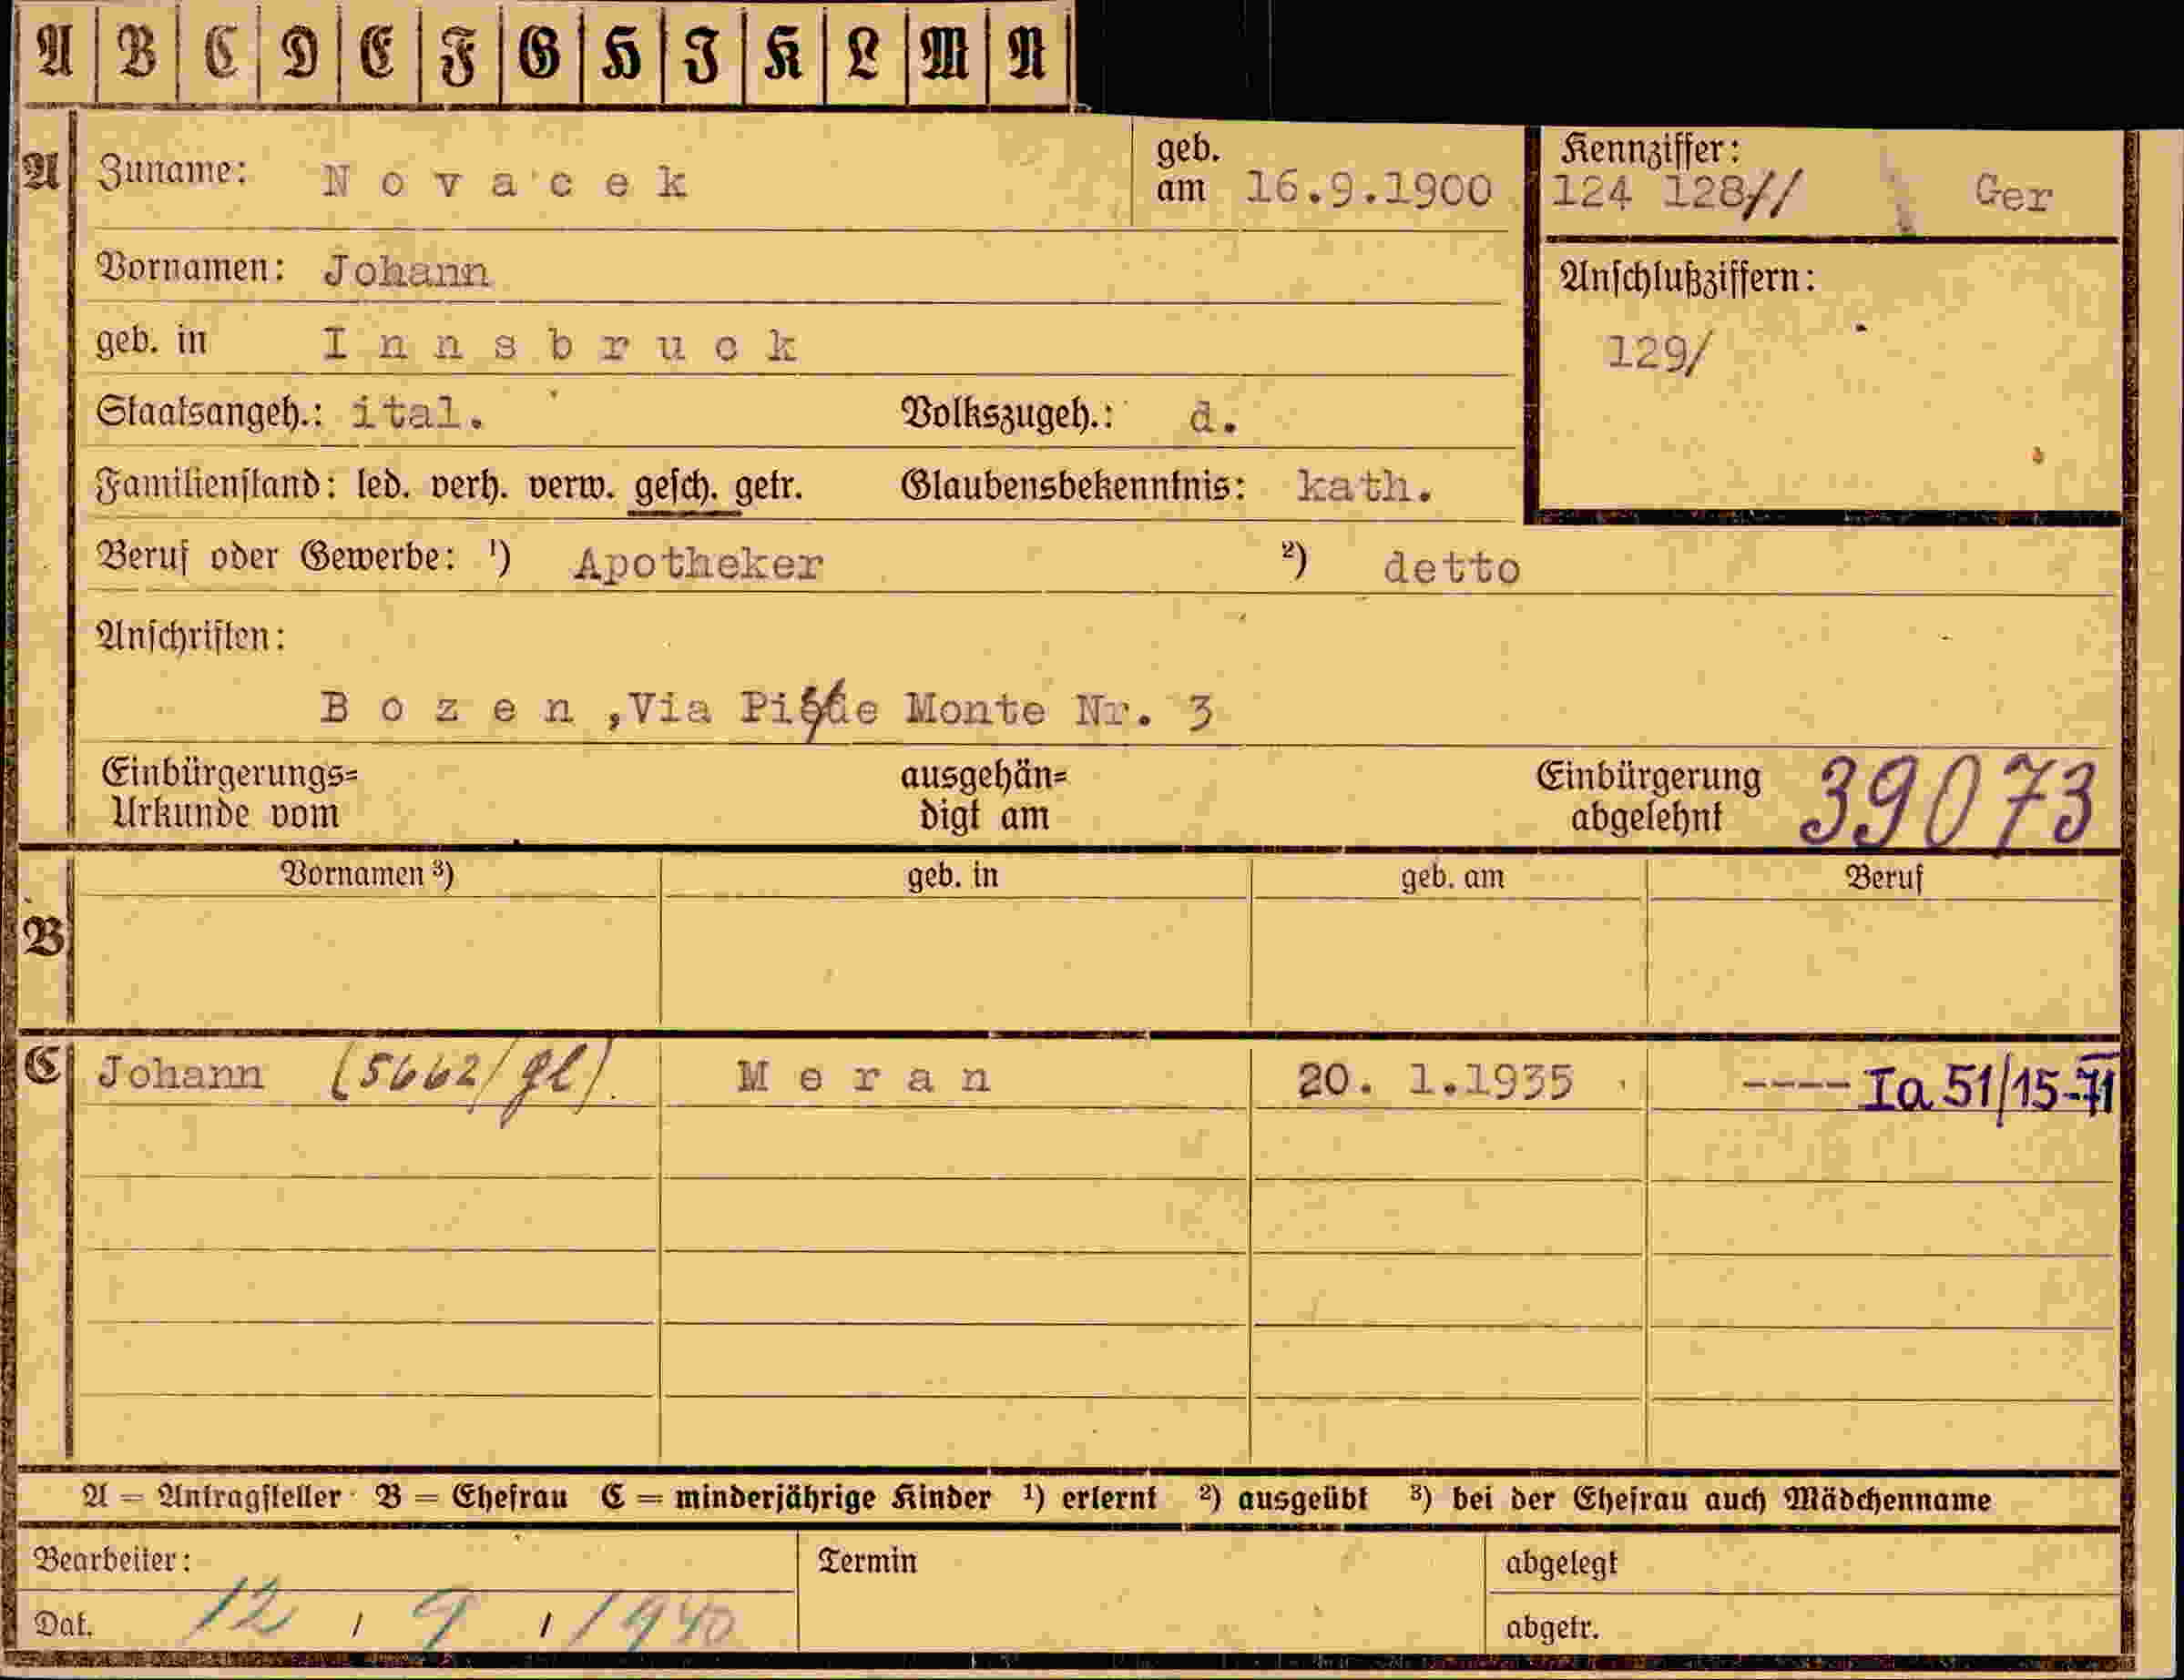 A B C D E F G H I K L M N
A Zuname: Novacek geb. am 16.9.1900 Kennziffer: 124 128// Ger
Vornamen: Johann Anschlußziffern:
geb. in Innsbruck 129/
Staatsangeh.: ital. Volkszugeh.: d.
Familienstand: led. verh. verw. gesch. getr. Glaubensbekenntnis: kath.
Beruf oder Gewerbe: ¹) Apotheker ²) detto
Anschriften:
Bozen, Via Monte Nr. 3
Einbürgerungs= ausgehän= Einbürgerung 39073
Urkunde vom digt am abgelehnt
Vornamen ³) geb. in geb. am Beruf
B
C Johann (5662/gl). Meran 20. 1.1935 ---- Ia 51/15-71
A = Antragsteller B = Ehefrau C = minderjährige Kinder ¹) erlernt ²) ausgeübt ³) bei der Ehefrau auch Mädchenname
Bearbeiter: Termin abgelegt
Dat. 12 / 9 / 1940 abgetr.